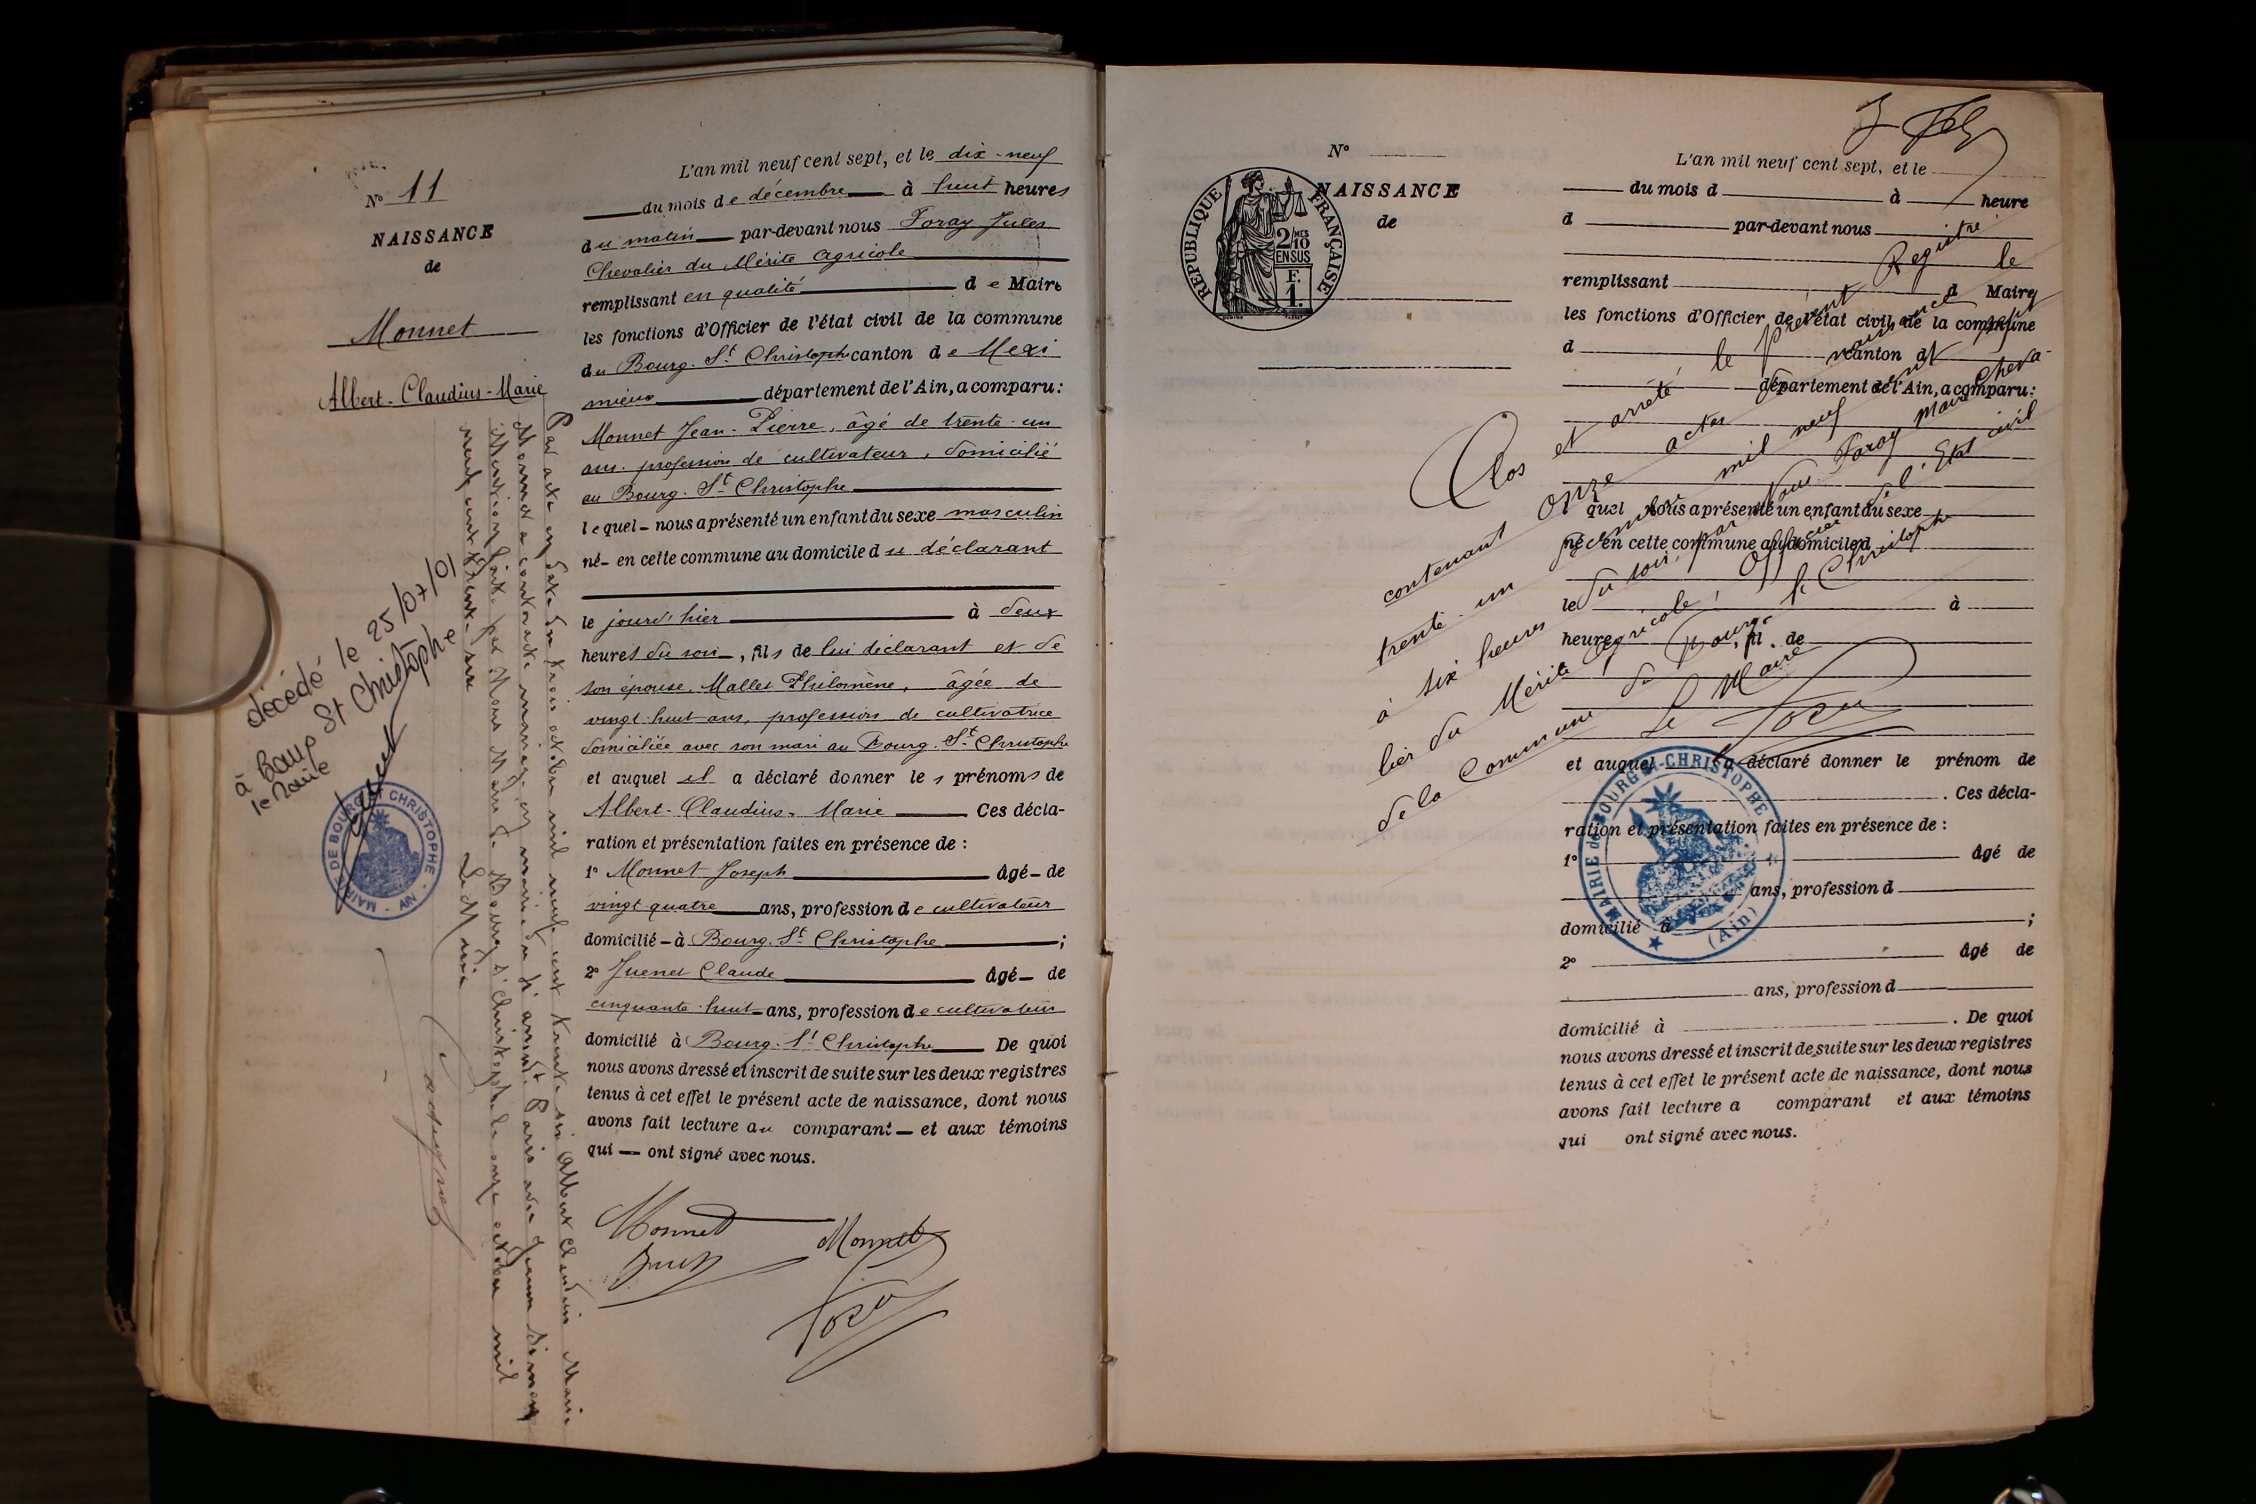 Nº 11
NAISSANCE
de
Monnet
Albert-Claudius-Marie
L'an mil neuf cent sept, et le dix-neuf
du mois de décembre à huit heures
du matin par-devant nous Foray Jules
Chevalier du Mérite Agricole
remplissant en qualité de Maire
les fonctions d'Officier de l'état civil de la commune
du Bourg-St Christophe canton de Mexi
mieux département de l'Ain, a comparu:
Monnet Jean-Pierre, âgé de trente-un
ans, profession de cultivateur, domicilié
au Bourg-St Christophe
lequel nous a présenté un enfant du sexe masculin
né en cette commune au domicile du déclarant
le jourd'hier à deux
heures du soir, fils de lui déclarant et de
son épouse, Mallet Philomène, âgée de
vingt-huit ans, profession de cultivatrice
domiciliée avec son mari au Bourg-St Christophe
et auquel il a déclaré donner les prénoms de
Albert-Claudius-Marie Ces décla-
ration et présentation faites en présence de :
1º Monnet Joseph âgé de
vingt quatre ans, profession de cultivateur
domicilié à Bourg-St Christophe ;
2º Juenet Claude âgé de
cinquante-huit ans, profession de cultivateur
domicilié à Bourg-St Christophe De quoi
nous avons dressé et inscrit de suite sur les deux registres
tenus à cet effet le présent acte de naissance, dont nous
avons fait lecture au comparant et aux témoins
qui ont signé avec nous.
Monnet Monnet
Foray
Par acte en date du trois octobre mil neuf cent trente six Albert Claudius Marie
Monnet a contracté mariage en mairie du arrondt Paris avec Jeanne
Mention faite par Nous Maire de Bourg St Christophe le onze octobre mil
neuf cent trente-six
Le Maire
décédé le 25/07/01
à Bourg St Christophe
le Maire
MAIRIE DE BOURG ST CHRISTOPHE - AIN
Nº
NAISSANCE
de
RÉPUBLIQUE FRANÇAISE
2/10 MES
EN SUS
F.
1.
L'an mil neuf cent sept, et le
du mois d à heure
d par-devant nous
remplissant d Maire
les fonctions d'Officier de l'état civil de la commune
d canton d
département de l'Ain, a comparu:
quel nous a présenté un enfant du sexe
né en cette commune au domicile d
le à
heure , fil de
et auquel a déclaré donner le prénom de
. Ces décla-
ration et présentation faites en présence de :
1º âgé de
ans, profession d
domicilié à ;
2º âgé de
ans, profession d
domicilié à . De quoi
nous avons dressé et inscrit de suite sur les deux registres
tenus à cet effet le présent acte de naissance, dont nous
avons fait lecture a comparant et aux témoins
qui ont signé avec nous.
Clos et arrêté le présent Registre
contenant onze actes de naissance le
trente-un décembre mil neuf cent sept
à six heures du soir, par Nous Foray Maire Cheva-
lier du Mérite Agricole, Officier de l'Etat civil
de la Commune du Bourg-St Christophe
Le Maire
Foray
MAIRIE de BOURG-St-CHRISTOPHE
(Ain)